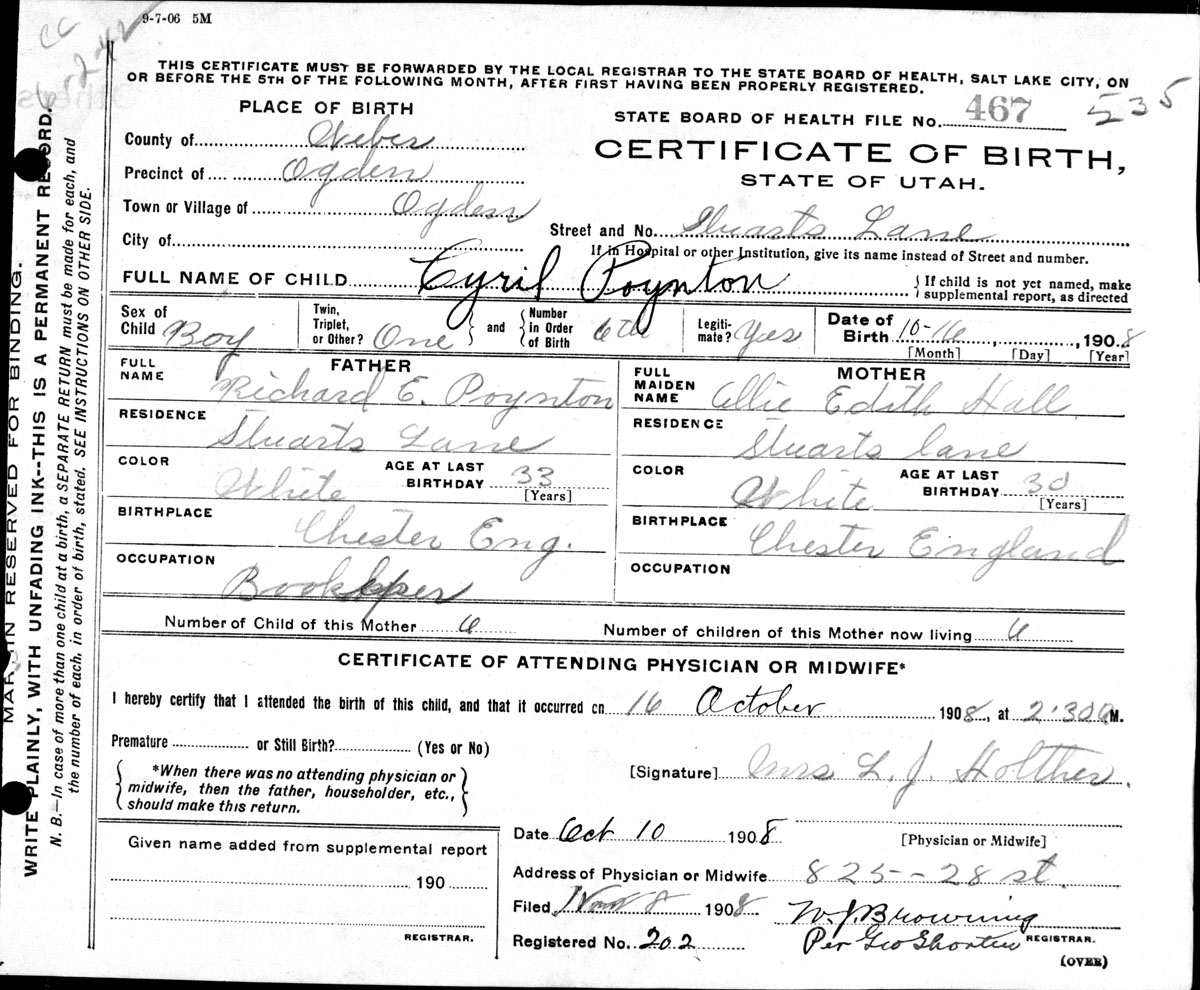 9-7-06 5M
CC
6-2-42
THIS CERTIFICATE MUST BE FORWARDED BY THE LOCAL REGISTRAR TO THE STATE BOARD OF HEALTH, SALT LAKE CITY, ON
OR BEFORE THE 5TH OF THE FOLLOWING MONTH, AFTER FIRST HAVING BEEN PROPERLY REGISTERED.
MARGIN RESERVED FOR BINDING.
WRITE PLAINLY, WITH UNFADING INK--THIS IS A PERMANENT RECORD.
N. B.—In case of more than one child at a birth, a SEPARATE RETURN must be made for each, and
the number of each, in order of birth, stated. SEE INSTRUCTIONS ON OTHER SIDE.
PLACE OF BIRTH
STATE BOARD OF HEALTH FILE No. 467 535
County of Weber
CERTIFICATE OF BIRTH,
Precinct of Ogden
STATE OF UTAH.
Town or Village of Ogden
Street and No. Stuarts Lane
City of
If in Hospital or other Institution, give its name instead of Street and number.
FULL NAME OF CHILD Cyril Poynton
{If child is not yet named, make
supplemental report, as directed
Sex of Child Boy
Twin, Triplet, or Other? One } and {
Number in Order of Birth 6th
Legiti-mate? Yes
Date of Birth 10-16, 1908
[Month] [Day] [Year]
FATHER
FULL NAME Richard E. Poynton
RESIDENCE Stuarts Lane
COLOR White AGE AT LAST BIRTHDAY 33 [Years]
BIRTHPLACE Chester Eng.
OCCUPATION Bookkper
MOTHER
FULL MAIDEN NAME Allie Edith Hall
RESIDENCE Stuarts lane
COLOR White AGE AT LAST BIRTHDAY 30 [Years]
BIRTHPLACE Chester England
OCCUPATION
Number of Child of this Mother 6 Number of children of this Mother now living 6
CERTIFICATE OF ATTENDING PHYSICIAN OR MIDWIFE*
I hereby certify that I attended the birth of this child, and that it occurred on 16 October 1908, at 2:30 a M.
Premature or Still Birth? (Yes or No)
*When there was no attending physician or
midwife, then the father, householder, etc.,
should make this return.
[Signature] Mrs L. J. Holther.
Date Oct 10 1908 [Physician or Midwife]
Given name added from supplemental report
190
REGISTRAR.
Address of Physician or Midwife 825--28 st.
Filed Nov 8 1908 W. J. Browning
Registered No. 202 Per Geo Shorten REGISTRAR.
(OVER)